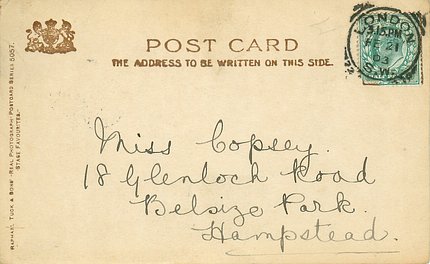 POST CARD
THE ADDRESS TO BE WRITTEN ON THIS SIDE.
LONDON
3.15 PM
21
03
S.W.
RAPHAEL TUCK & SONS' "REAL PHOTOGRAPH" POSTCARD SERIES 5057.
"STAGE FAVOURITES."
Miss Copsey.
18 Glenloch Road
Belsize Park.
Hampstead.